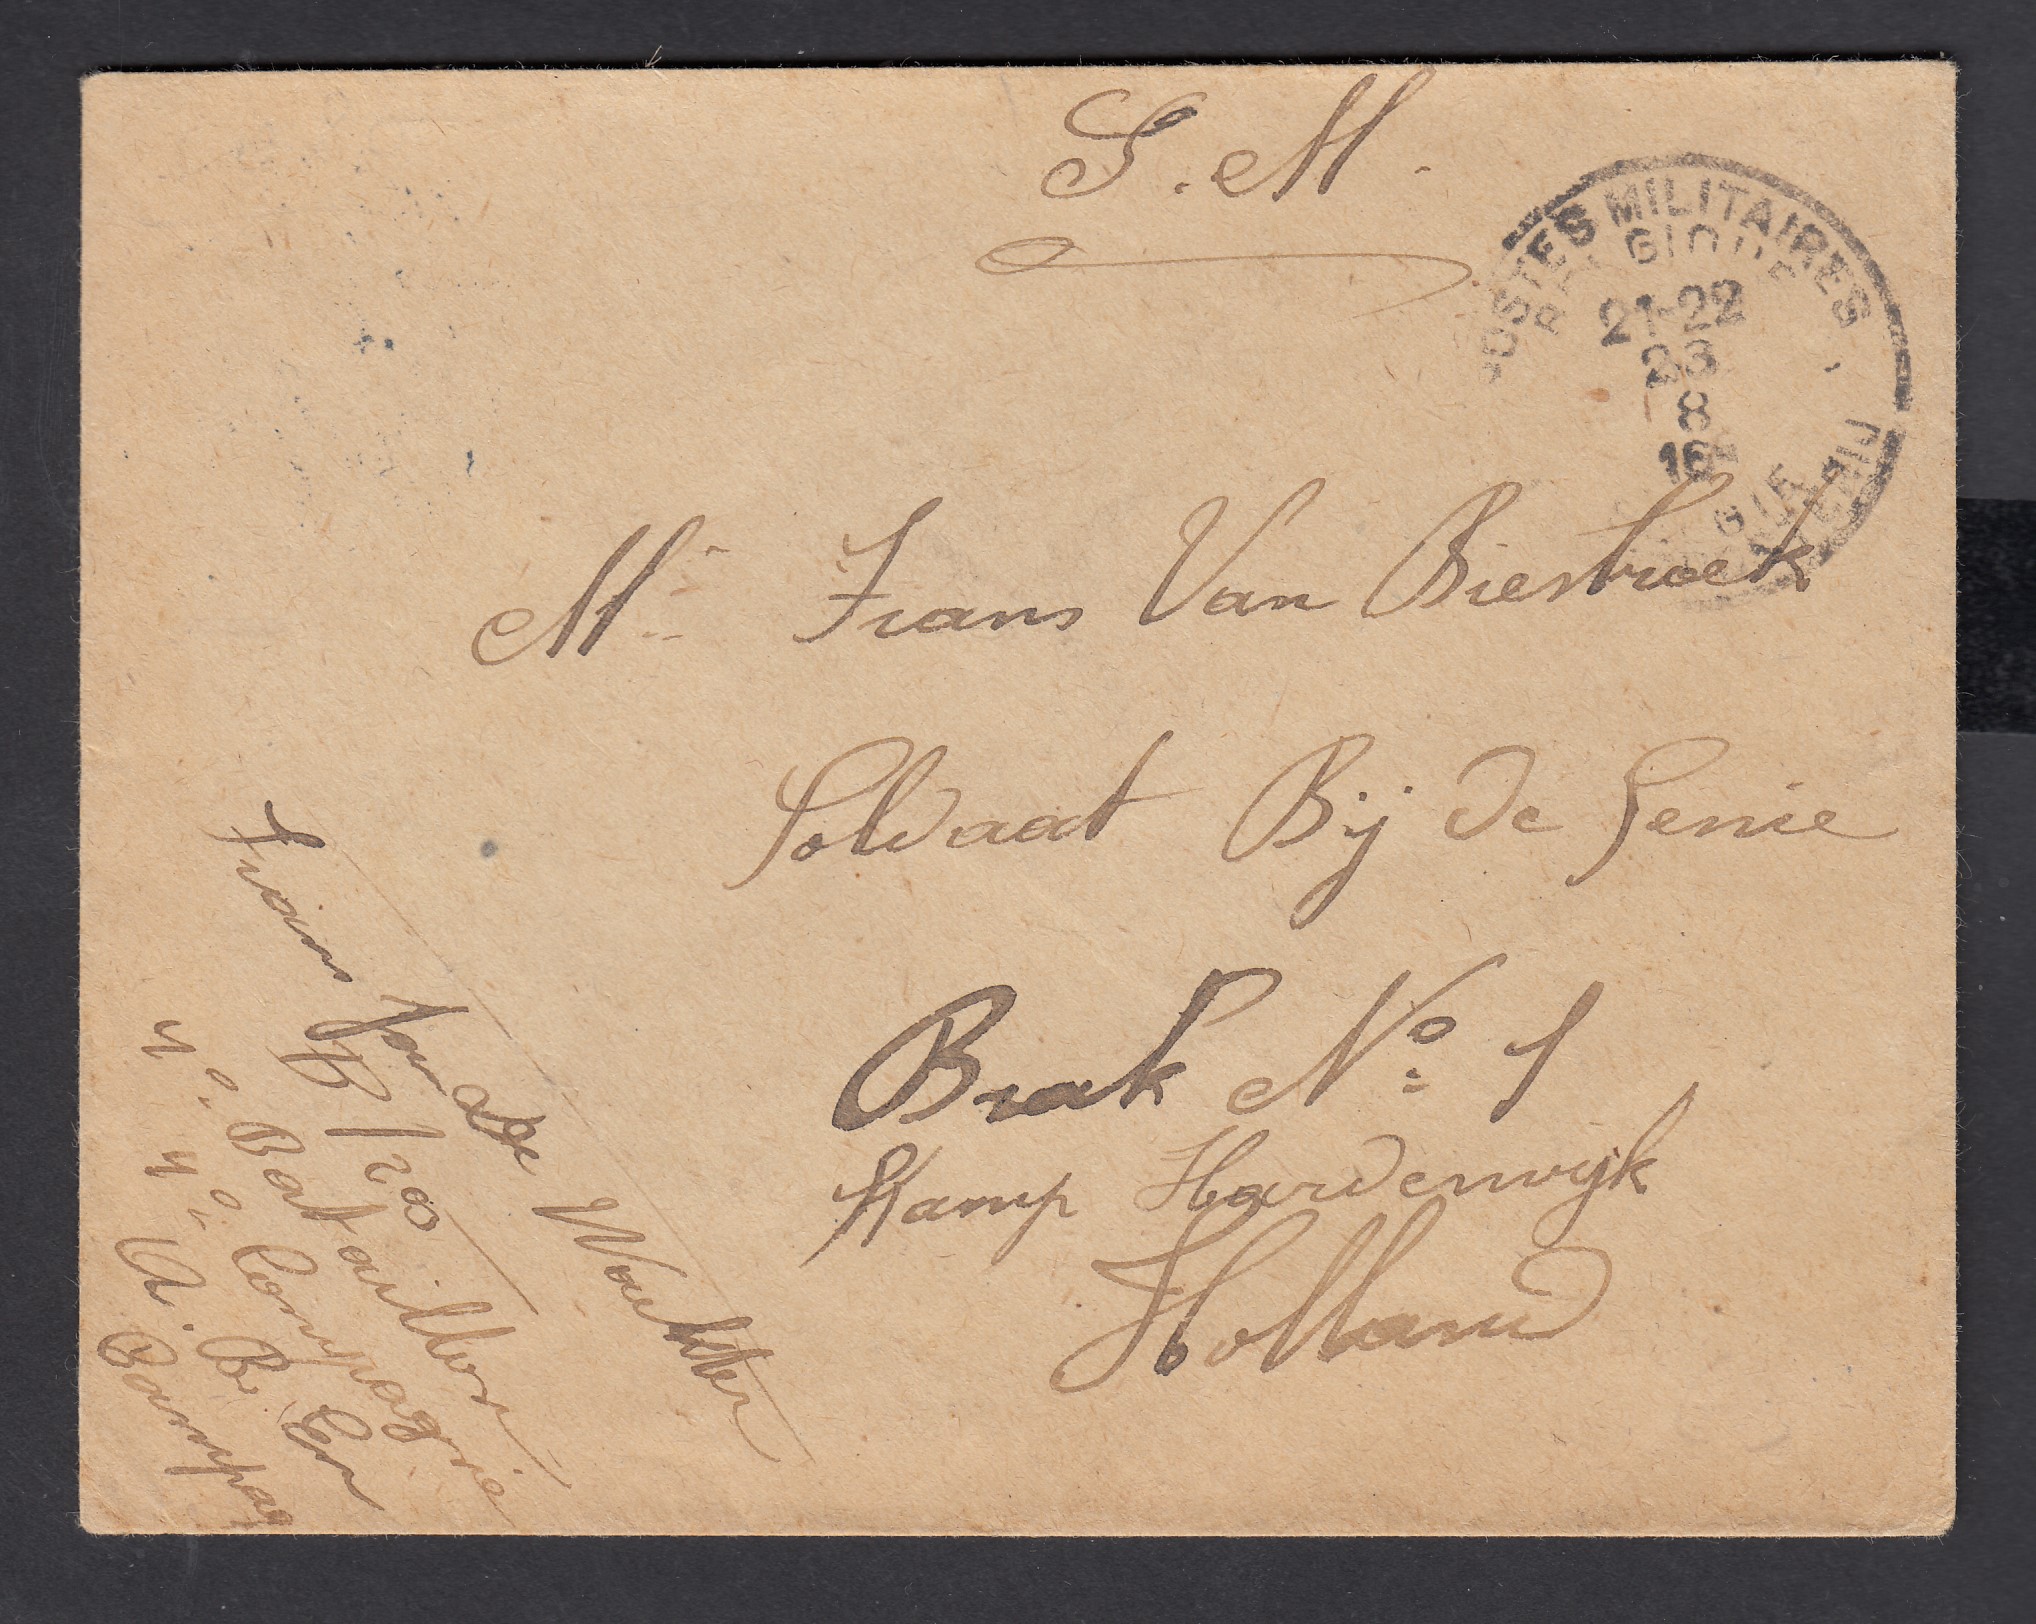 S. M.
POSTES MILITAIRES
BELGIQUE
21-22
23
8
16
Mr Frans Van Biesbroek
Soldaat Bij de Genie
Brak No 1
Kamp Harderwijk
Holland
Frans Van de Wouwer
B 120
4e Bataillon
4e Compagnie
A. B. En
Campag